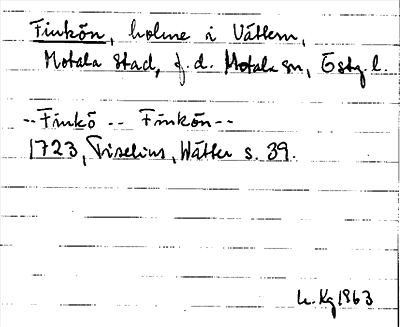 Finkön, holme i Vättern,
Motala stad, f.d. Motala sn, Östg. l.
-- Finkö -- Finkön --
1723, Tiselius, Wätter s. 39.
Kg 1963